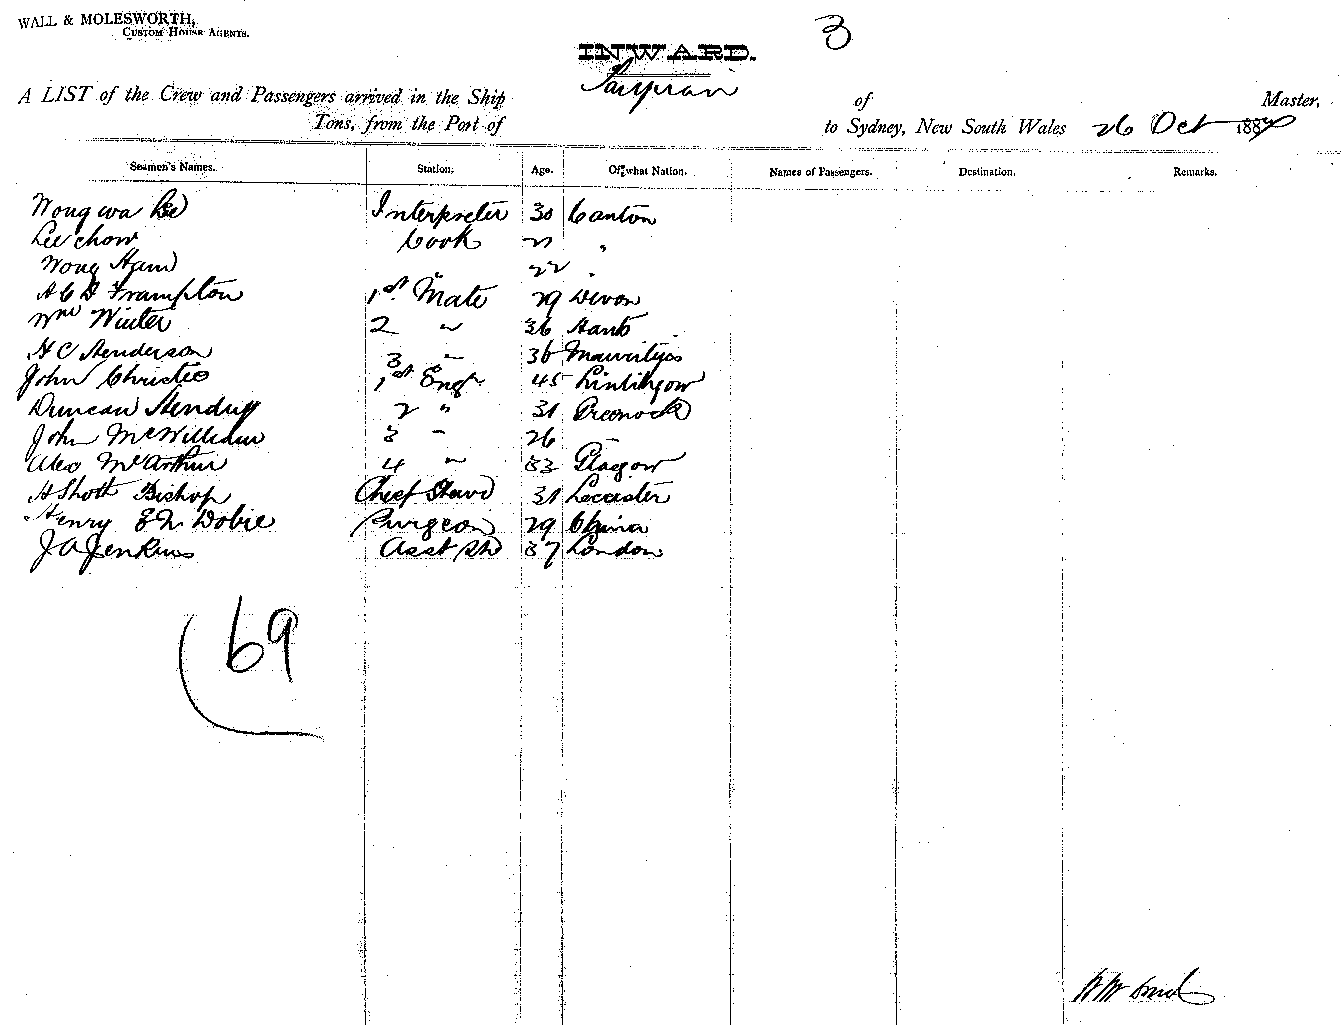 WALL & MOLESWORTH,
CUSTOM HOUSE AGENTS.
3
INWARD.
A LIST of the Crew and Passengers arrived in the Ship Taiyuan of Master,
Tons, from the Port of to Sydney, New South Wales 26 Oct 1887
Seamen's Names. Station. Age. Of what Nation. Names of Passengers. Destination. Remarks.
Wong wa Lee Interpreter 30 Canton
Lee chow Cook 27 "
Wong Ham " 22 "
A C D Frampton 1st Mate 29 Devon
Wm Winter 2 " 36 Hants
H C Henderson 3 " 36 Mauritius
John Christie 1st Engr 45 Linlithgow
Duncan 2 " 31 Greenock
John McWilliam 3 " 26 "
Alex McArthur 4 " 33 Glasgow
H Shott Bishop Chief Stewd 31 Leicester
Henry Dobie Surgeon 29 China
J A Jenkins Asst Std 37 London
69